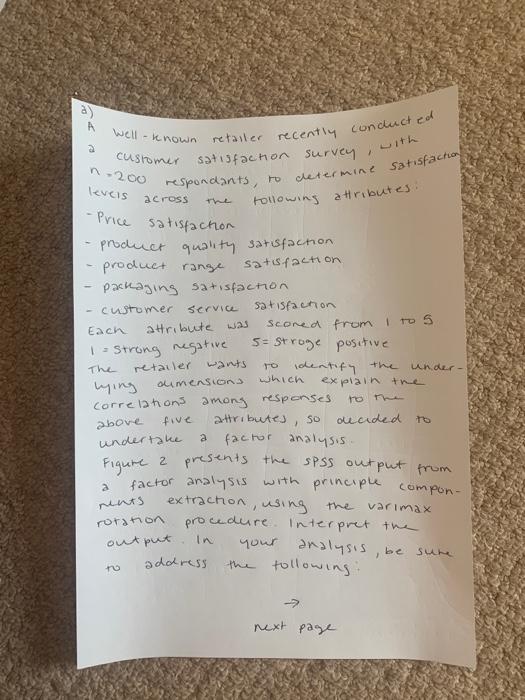 a)
A well-known retailer recently conducted
a customer satisfaction survey, with
n=200 respondants, to determine satisfaction
levels across the following attributes:
- Price satisfaction
- product quality satisfaction
- product range satisfaction
- packaging satisfaction
- customer service satisfaction
Each attribute was scored from 1 to 5
1 = strong negative 5= stroge positive
The retailer wants to identify the under-
lying dimensions which explain the
correlations among responses to the
above five attributes, so decided to
undertake a factor analysis.
Figure 2 presents the SPSS output from
a factor analysis with principle compon-
nents extraction, using the varimax
rotation procedure. Interpret the
output. In your analysis, be sure
to address the following:
→
next page